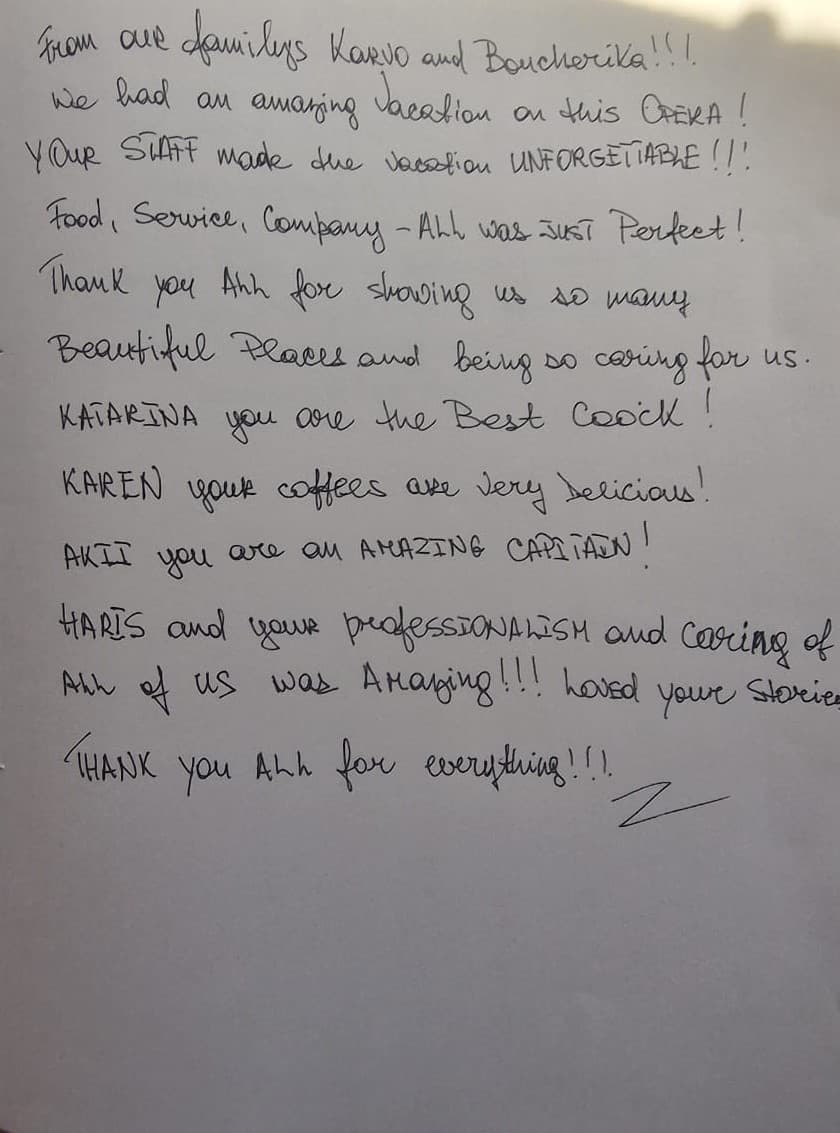 From our familys Karvo and Boucherika!!!
We had an amazing Vacation on this OPERA!
YOUR STAFF made the vacation UNFORGETTABLE!!!
Food, Service, Company - ALL was JUST Perfect!
Thank you ALL for showing us so many
Beautiful Places and being so caring for us.
KATARINA you are the Best Coock!
KAREN your coffees are very Delicious!
AKII you are an AMAZING CAPITAIN!
HARIS and your professIONALISM and Caring of
ALL of us was AMazing!!! Loved your Stories
THANK you ALL for everything!!!